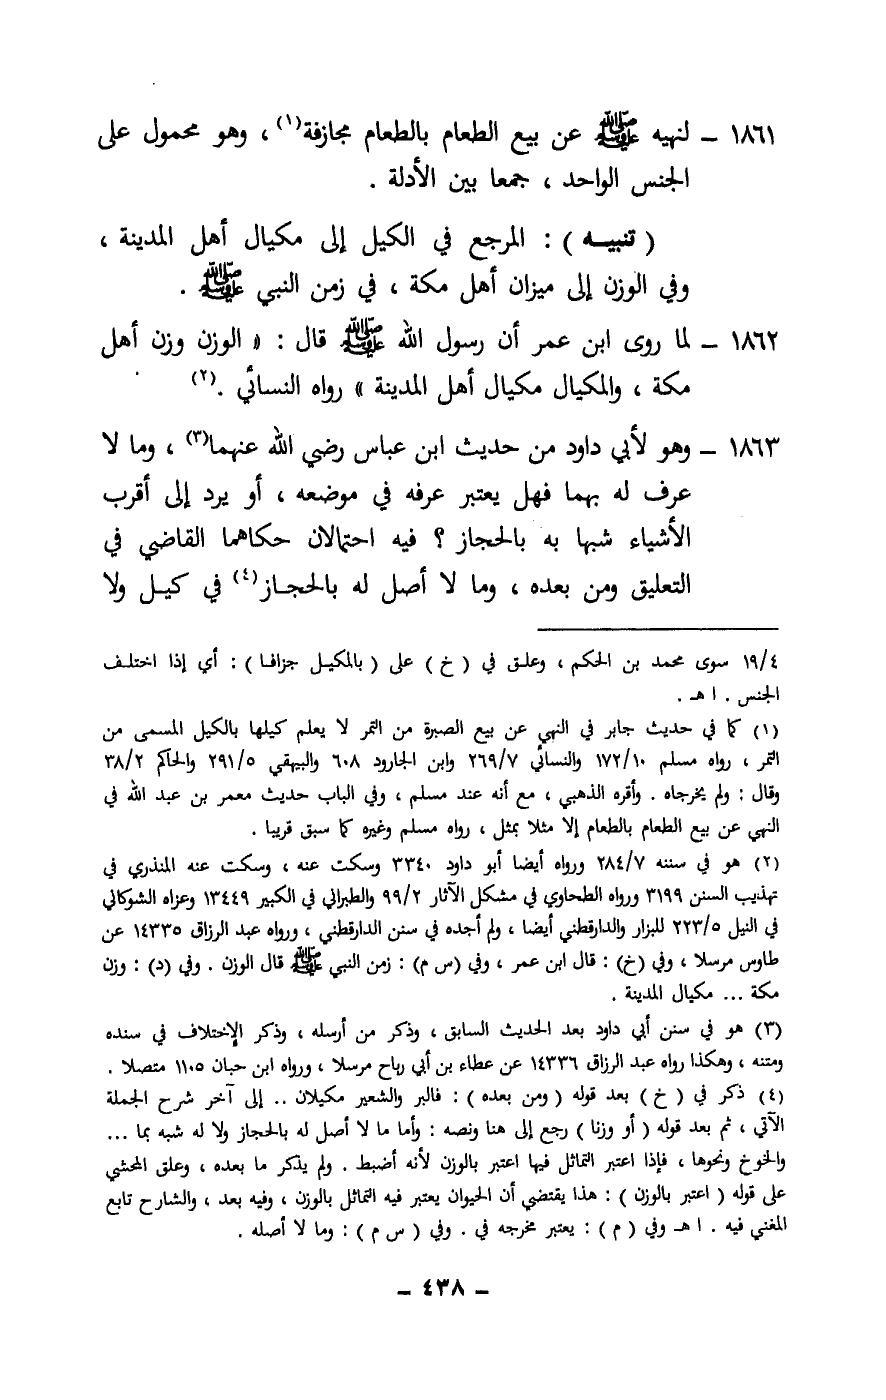 ١٨٦١ ــ لنهيه ﷺ عن بيع الطعام بالطعام مجازفة(١) ، وهو محمول على
الجنس الواحد ، جمعا بين الأدلة .
( تنبيــه ) : المرجع في الكيل إلى مكيال أهل المدينة ،
وفي الوزن إلى ميزان أهل مكة ، في زمن النبي ﷺ .
١٨٦٢ ــ لما روى ابن عمر أن رسول الله ﷺ قال : « الوزن وزن أهل
مكة ، والمكيال مكيال أهل المدينة » رواه النسائي .(٢)
١٨٦٣ ــ وهو لأبي داود من حديث ابن عباس رضي الله عنهما(٣) ، وما لا
عرف له بهما فهل يعتبر عرفه في موضعه ، أو يرد إلى أقرب
الأشياء شبها به بالحجاز ؟ فيه احتمالان حكاهما القاضي في
التعليق ومن بعده ، وما لا أصل له بالحجـاز(٤) في كيـل ولا
١٩/٤ سوى محمد بن الحكم ، وعلـق في ( خ ) على ( بالمكيـل جزافـا ) : أي إذا اختلـف
الجنس . ا هـ .
(١) كما في حديث جابر في النهي عن بيع الصبرة من التمر لا يعلم كيلها بالكيل المسمى من
التمر ، رواه مسلم ١٧٢/١٠ والنسائي ٢٦٩/٧ وابن الجارود ٦٠٨ والبيهقي ٢٩١/٥ والحاكم ٣٨/٢
وقال : ولم يخرجاه . وأقره الذهبي ، مع أنه عند مسلم ، وفي الباب حديث معمر بن عبد الله في
النهي عن بيع الطعام بالطعام إلا مثلا بمثل ، رواه مسلم وغيره كما سبق قريبا .
(٢) هو في سننه ٢٨٤/٧ ورواه أيضا أبو داود ٣٣٤٠ وسكت عنه ، وسكت عنه المنذري في
تهذيب السنن ٣١٩٩ ورواه الطحاوي في مشكل الآثار ٩٩/٢ والطبراني في الكبير ١٣٤٤٩ وعزاه الشوكاني
في النيل ٢٢٣/٥ للبزار والدارقطني أيضا ، ولم أجده في سنن الدارقطني ، ورواه عبد الرزاق ١٤٣٣٥ عن
طاوس مرسلا ، وفي (خ) : قال ابن عمر ، وفي (س م) : زمن النبي ﷺ قال الوزن . وفي (د) : وزن
مكة ... مكيال المدينة .
(٣) هو في سنن أبي داود بعد الحديث السابق ، وذكر من أرسله ، وذكر الإختلاف في سنده
ومتنه ، وهكذا رواه عبد الرزاق ١٤٣٣٦ عن عطاء بن أبي رباح مرسلا ، ورواه ابن حبان ١١٠٥ متصلا .
(٤) ذكر في ( خ ) بعد قوله ( ومن بعده ) : فالبر والشعير مكيلان .. إلى آخر شرح الجملة
الآتي ، ثم بعد قوله ( أو وزنا ) رجع إلى هنا ونصه : وأما ما لا أصل له بالحجاز ولا له شبه بما ...
والخوخ ونحوها ، فإذا اعتبر التماثل فيها اعتبر بالوزن لأنه أضبط . ولم يذكر ما بعده ، وعلق المحشي
على قوله ( اعتبر بالوزن ) : هذا يقتضي أن الحيوان يعتبر فيه التماثل بالوزن ، وفيه بعد ، والشارح تابع
المغني فيه . ا هـ وفي ( م ) : يعتبر مخرجه في . وفي ( س م ) : وما لا أصله .
ــ ٤٣٨ ــ